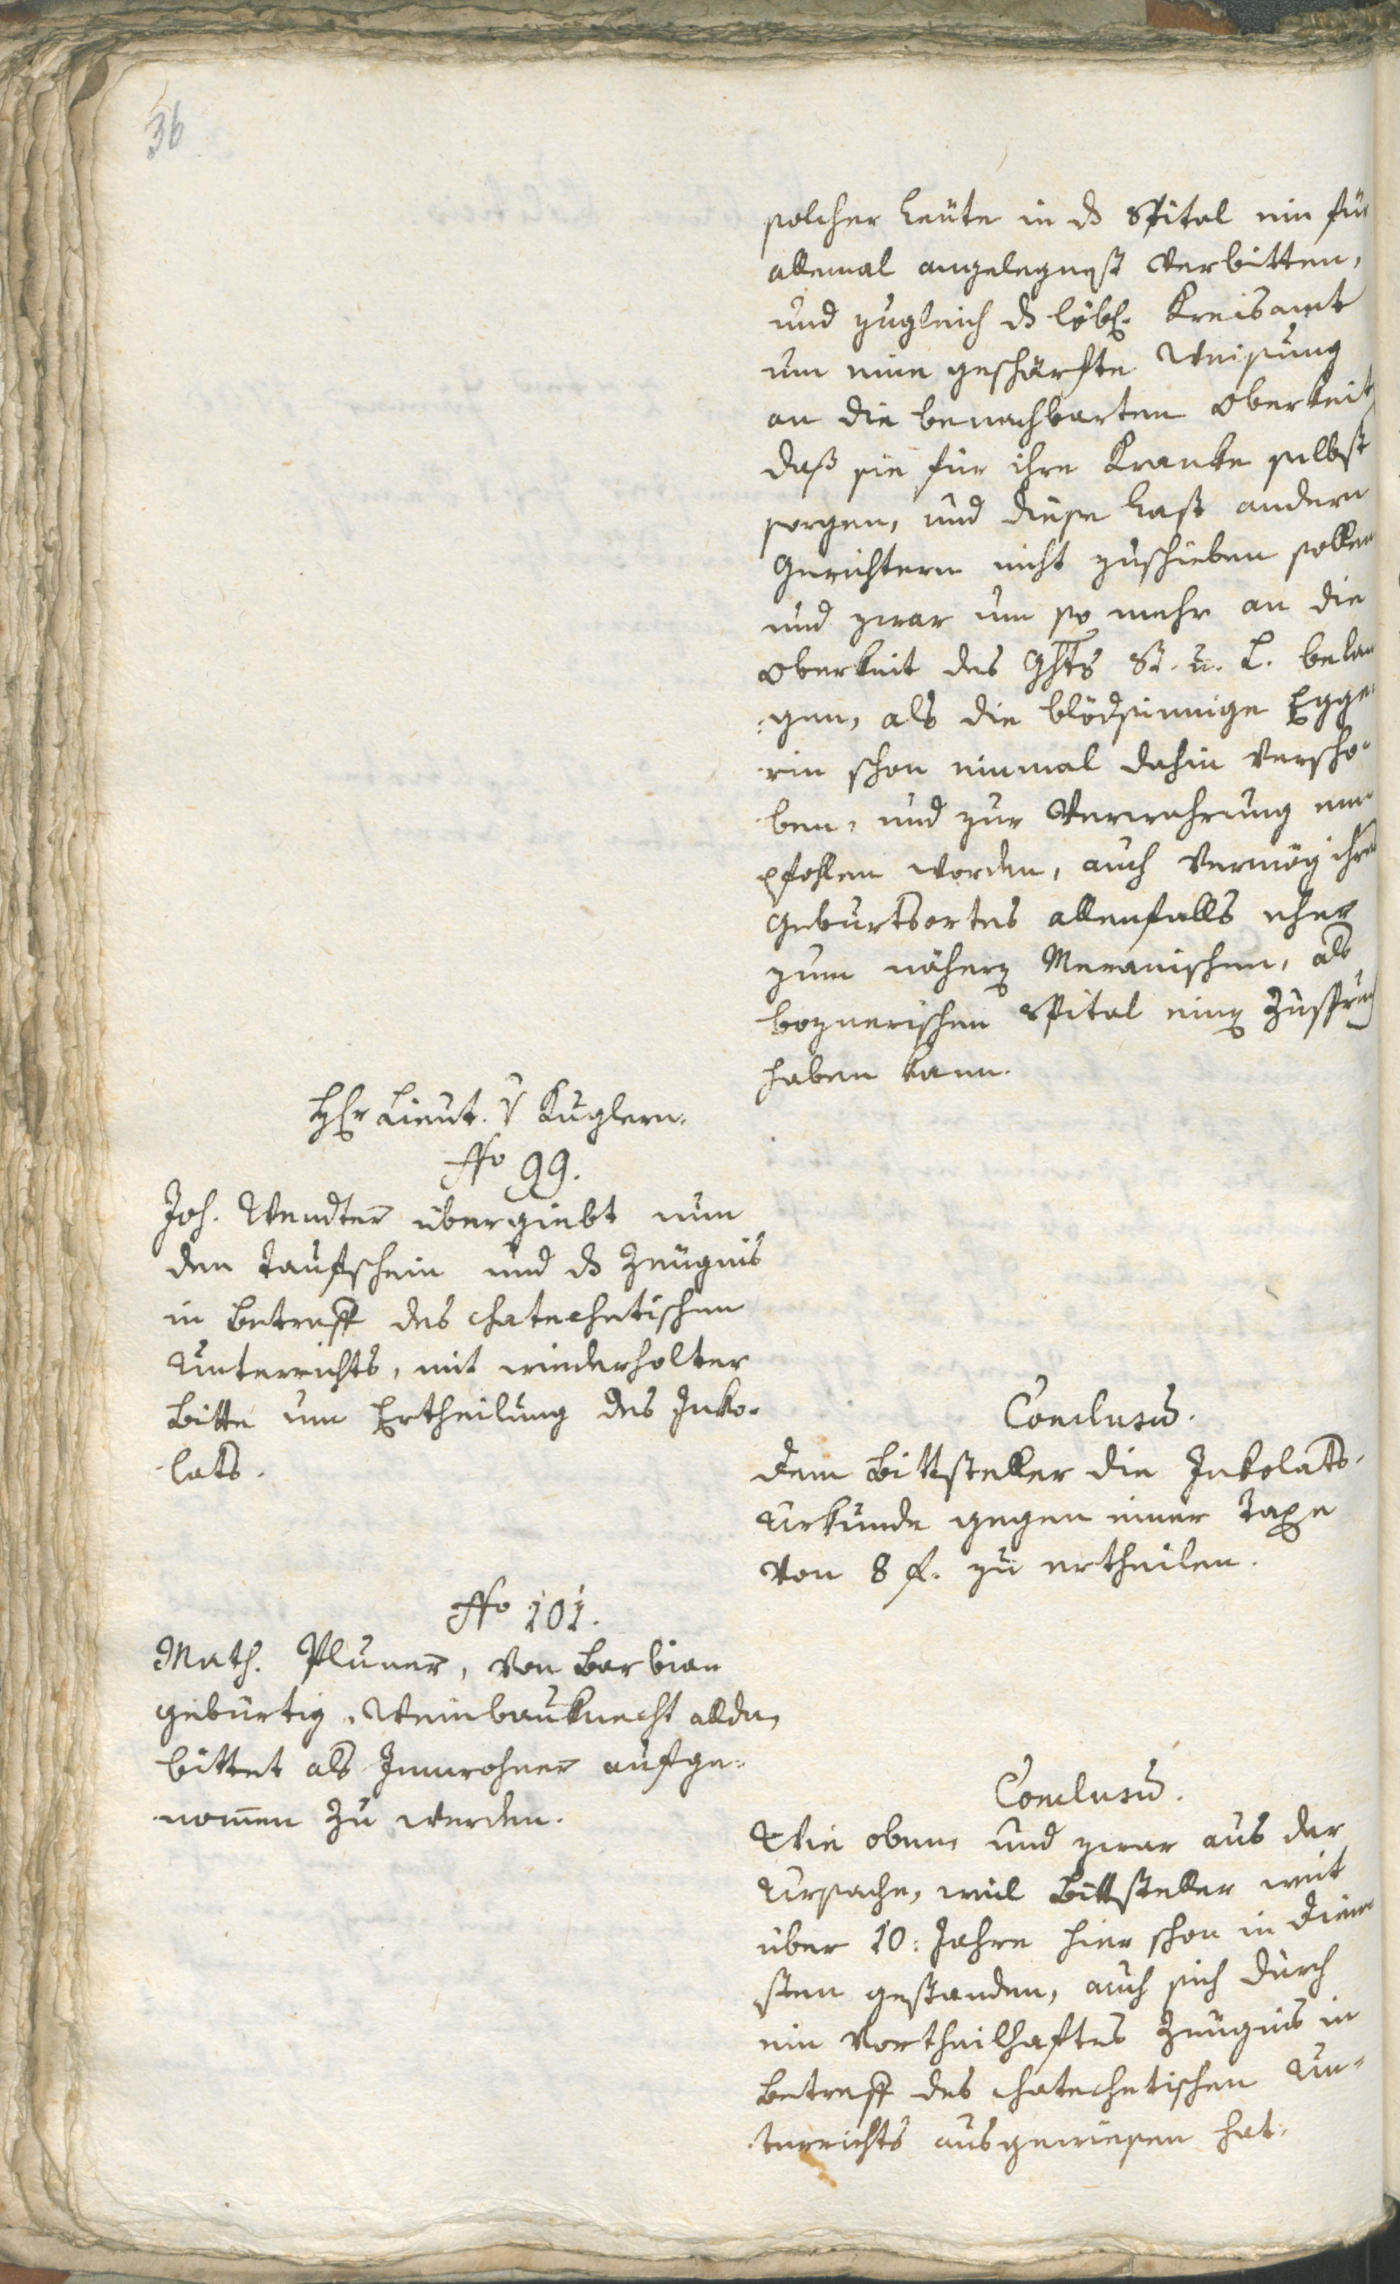 36
solcher Leüte in ds Spital ein für
allemal angelegnest verbitten,
und zugleich ds löbl. Kreisamt
um eine geschärfte Weisung
an die benachbarten Oberkeit
daß sie für ihre Kranke selbst
sorgen, und diese Last andern
Gerichtern nicht zuschieben sollen
und zwar um so mehr an die
Oberkeit des Ghts St. u. L. belan
gen, als die blödsinnige Egge
rin schon einmal dahin verscho-
ben, und zur Verwahrung em
pfohlen worden, auch vermög ihres
Geburtsortes allenfalls eher
zum nähern Meranischen, als
boznerischen Spital einen Zuspruch
haben kann.
Hr Lieut. v Kuglern.
No 99.
Joh. Wendter übergiebt nun
den Taufschein und ds Zeugnis
in Betreff des chatechetischen
Unterrichts, mit wiederholter
Bitte um Ertheilung des Inko-
lats.
Conclusū.
Dem Bittsteller die Inkolats-
Urkunde gegen einer Taxe
von 8 f. zu ertheilen.
No 101.
Math. Pluner, von Barbian
gebürtig, Weinbauknecht allda,
bittet als Innwohner aufge-
nom̄en zu werden.
Conclusū.
Wie oben, und zwar aus der
Ursache, weil Bittsteller weit
über 10: Jahre hier schon in Dien
sten gestanden, auch sich durch
ein vortheilhaftes Zeugnis in
Betreff des chatechetischen Un-
terrichts ausgewiesen hat.